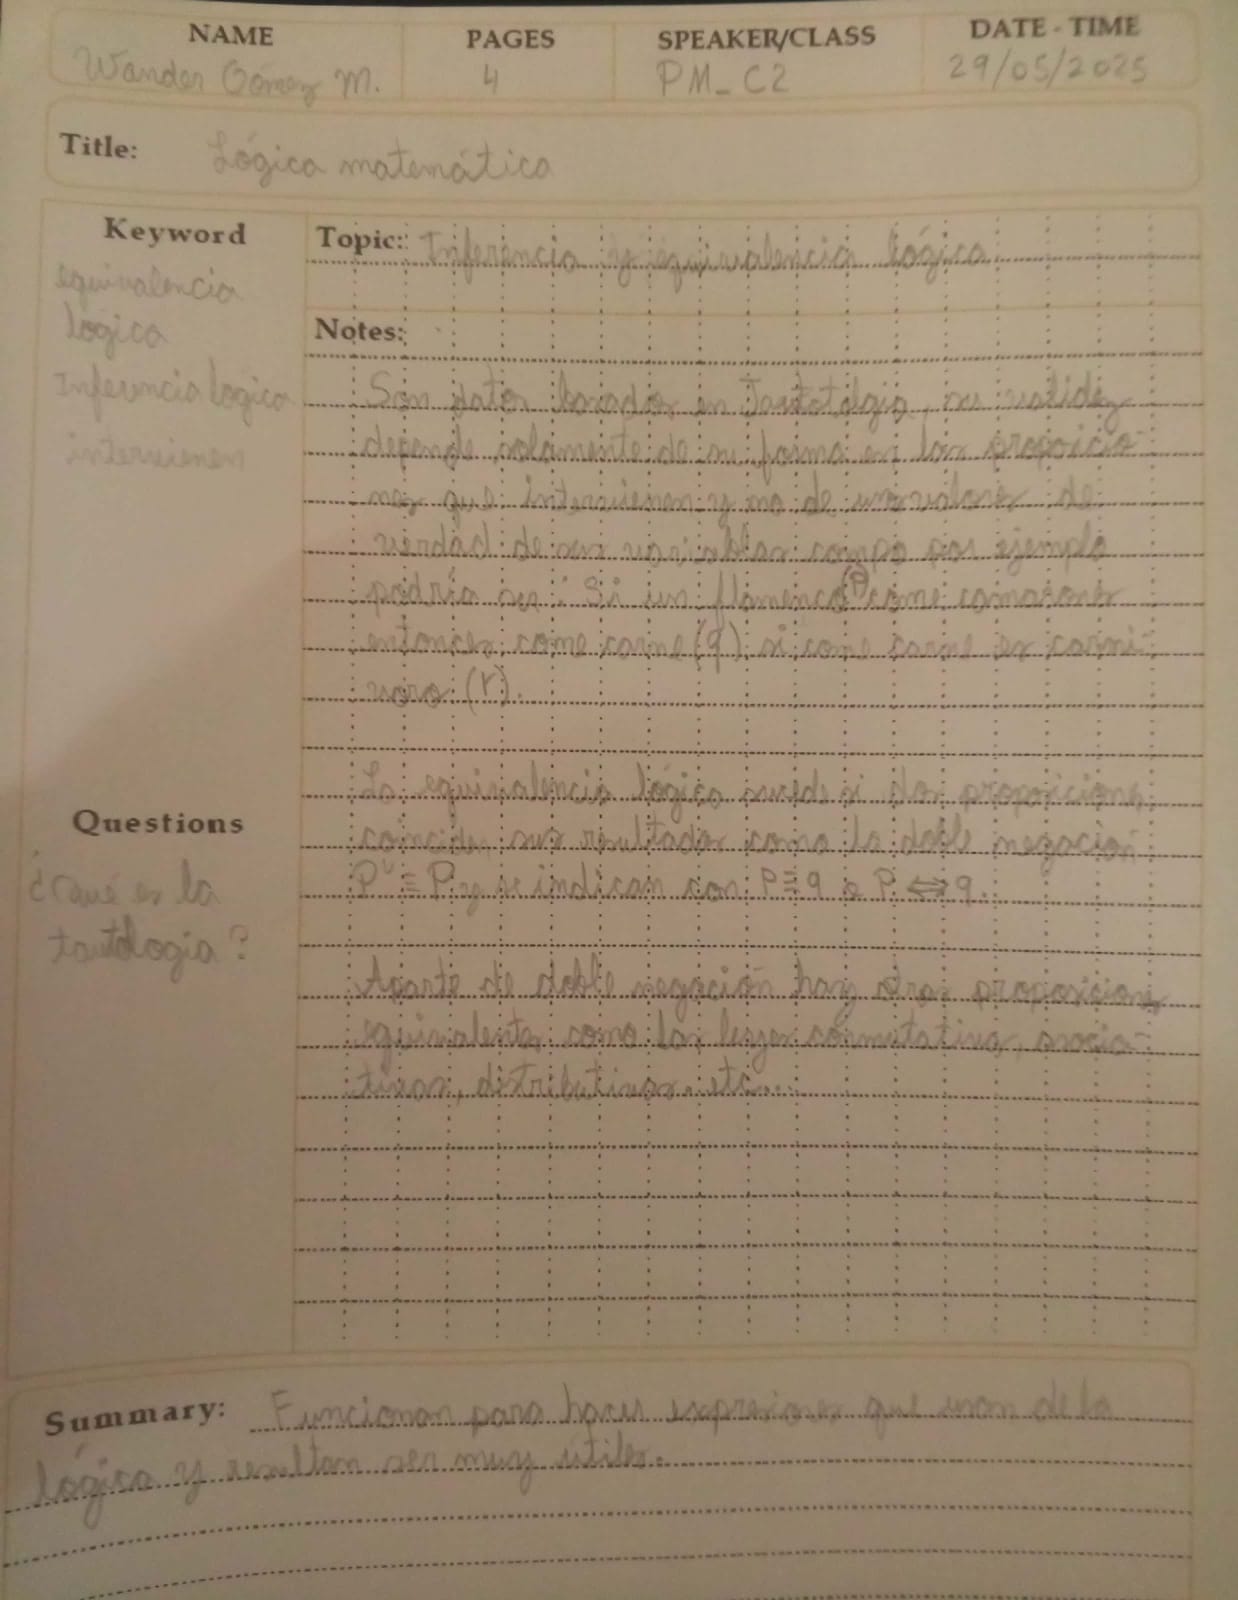 NAME PAGES SPEAKER/CLASS DATE - TIME
Wander Gómez M. 4 PM_C2 29/05/2025
Title: Lógica matemática
Keyword
equivalencia
lógica
Inferencia logica
intervienen
Topic: Inferencia y equivalencia lógica
Notes:
Son datos basados en Tautología, su validez
depende solamente de su forma en las proposicio-
nes que intervienen y no de valores de
verdad de sus variables por ejemplo
podría ser: Si un flamenco (P) come camarones
entonces come carne (q) si come carne es carni-
voro (r).
La equivalencia lógica sucede si dos proposiciones
coinciden sus resultados como la doble negación
P ≡ P y se indican con P ≡ q o P ⟺ q.
Aparte de doble negación hay otras proposiciones
equivalentes como las leyes conmutativas, asocia-
tivas, distributivas. etc...
Questions
¿Qué es la
tautologia?
Summary: Funcionan para hacer expresiones que usan de la
lógica y resultan ser muy útiles.